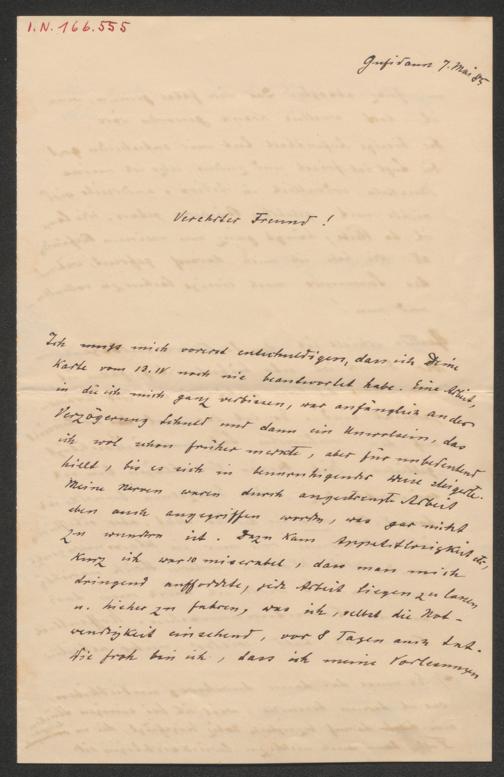 I.N. 166.555
Gufidaun 7. Mai 85
Verehrter Freund!
Ich muss mich vorerst entschuldigen, dass ich Deine
Karte vom 13. IV noch nie beantwortet habe. Eine Arbeit,
in die ich mich ganz verbissen, war anfänglich an der
Verzögerung Schuld und dann ein Unwohlsein, das
ich wol schon früher merkte, aber für unbedeutend
hielt, bis es sich in beunruhigender Weise steigerte.
Meine Nerven waren durch angestrengte Arbeit
eben auch angegriffen worden, was gar nicht
zu wundern ist. Dazu kam Appetitlosigkeit etc,
kurz ich war so miserabel, dass man mich
dringend aufforderte, jede Arbeit liegen zu lassen
u. hieher zu fahren, was ich, selbst die Not-
wendigkeit einsehend, vor 8 Tagen auch tat.
Wie froh bin ich, dass ich meine Vorlesungen